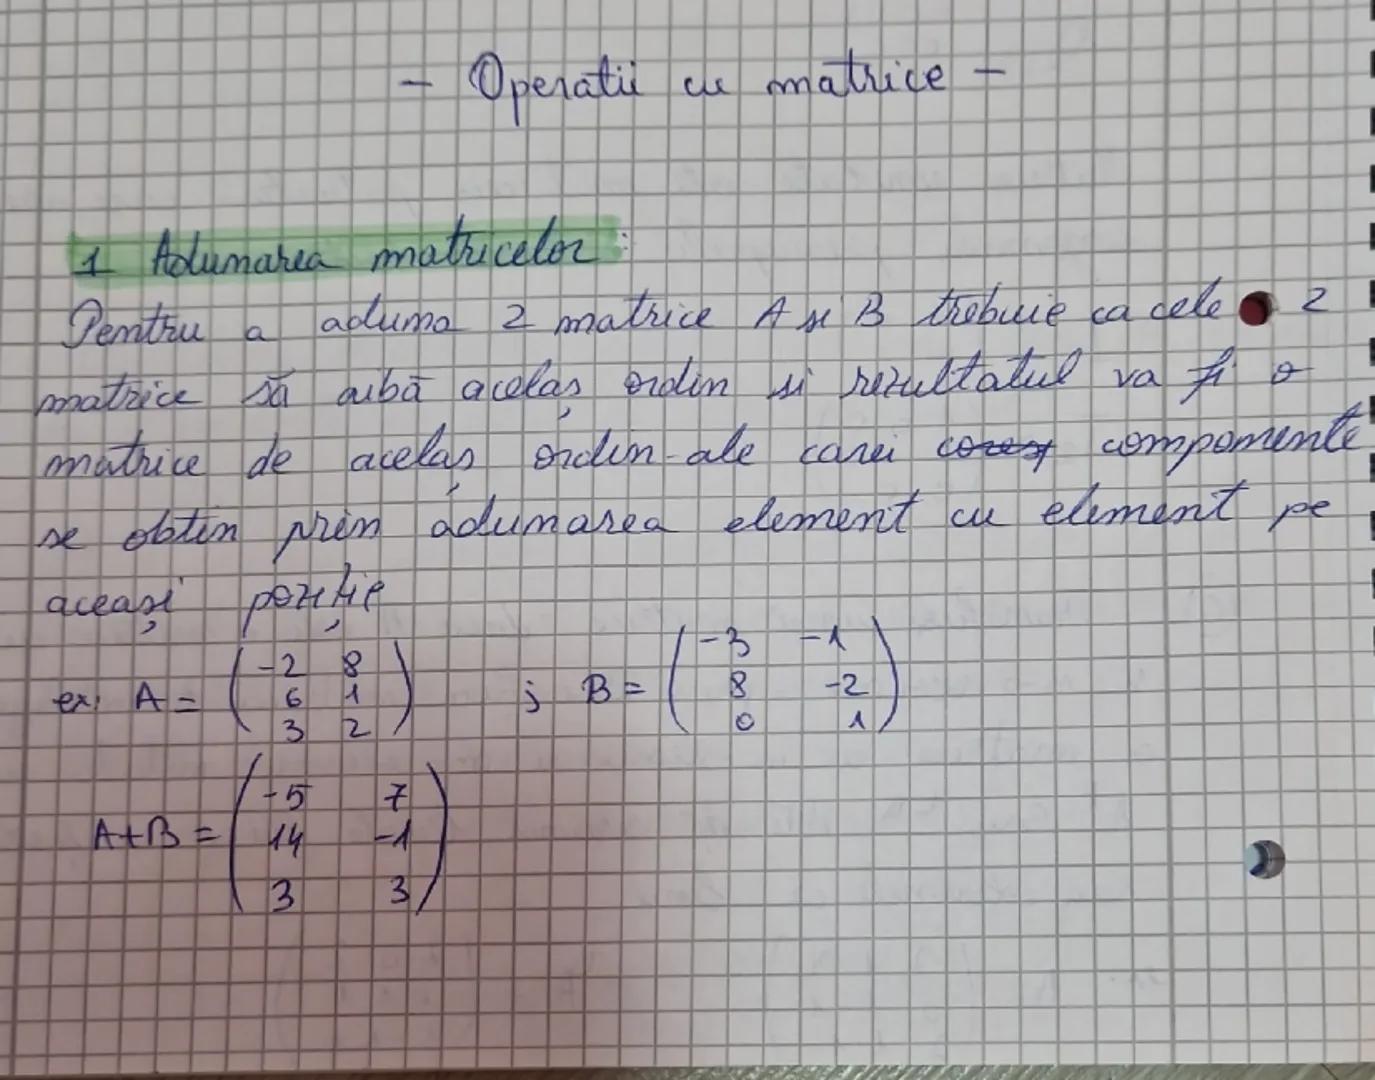 - Operatii cu matrice -
1 Adunarea matricelor:
Pentru a aduna 2 matrice A și B trebuie ca cele 2
matrice să aibă acelaș ordin si rezultatul va fi o
matrice de acelaș ordin ale carei componente
se obtin prin adunarea element cu element pe
aceași poziție
ex: A = ( -2 8 ) ; B = ( -3 -1 )
6 1 8 -2
3 2 0 1
A+B = ( -5 7 )
14 -1
3 3